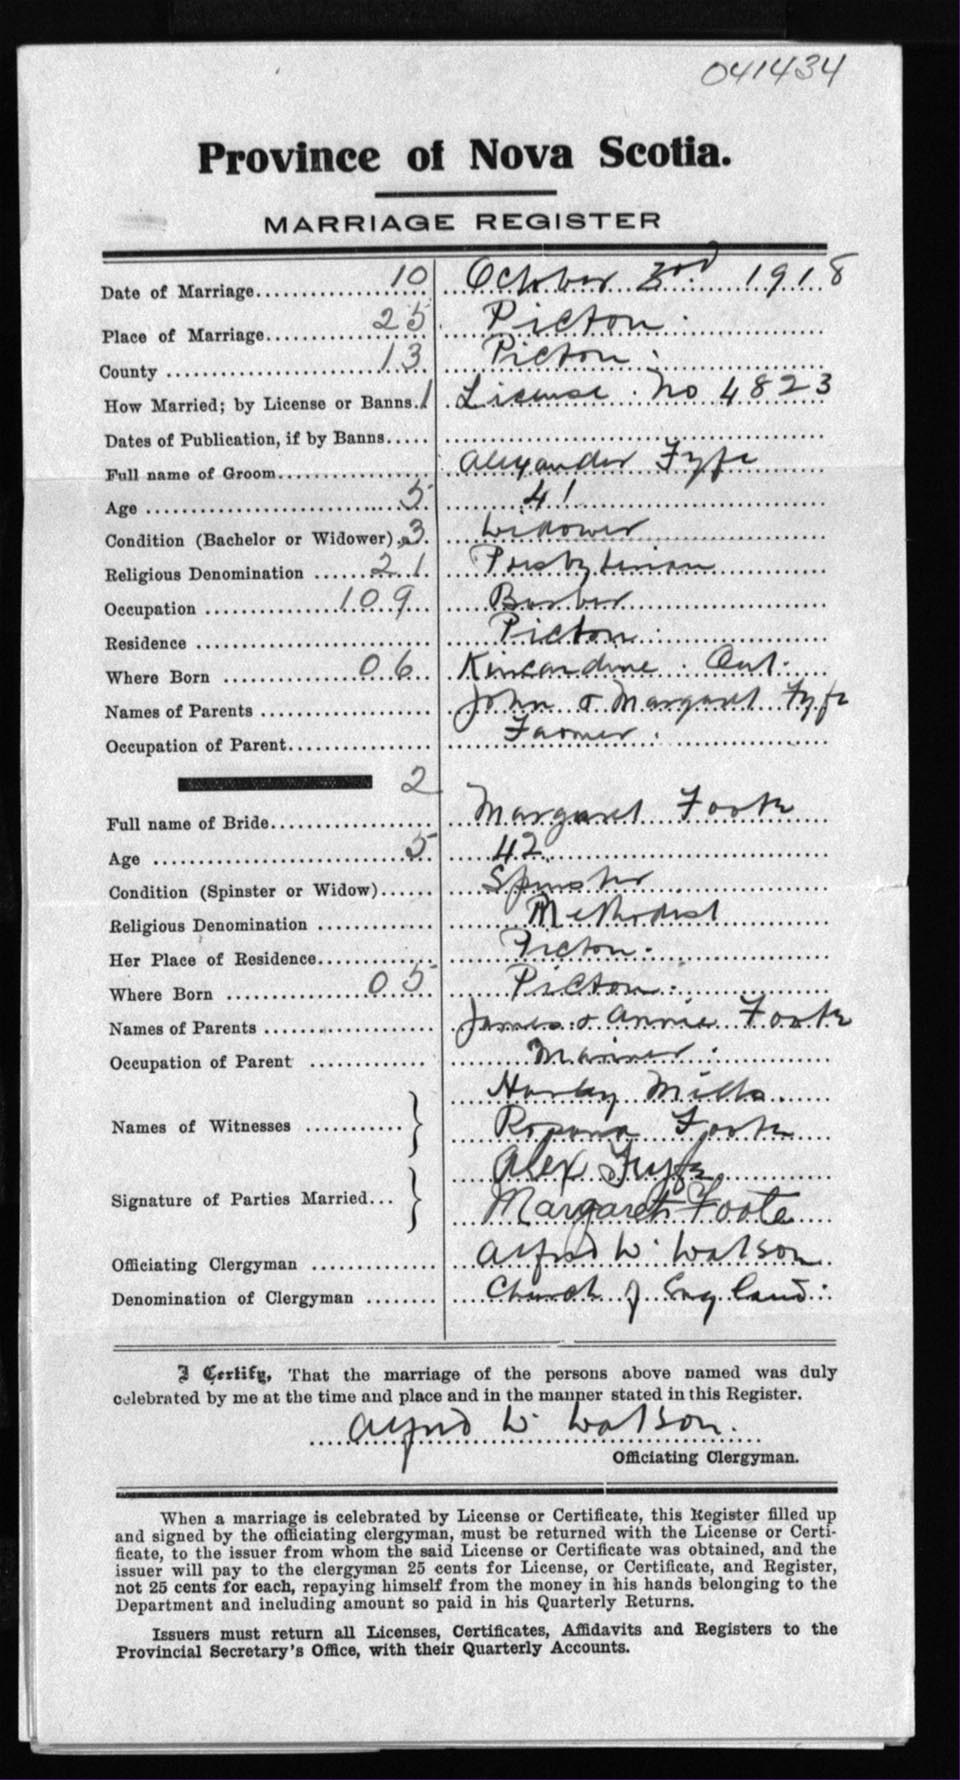 041434
Province of Nova Scotia.
MARRIAGE REGISTER
Date of Marriage 10 October 3rd 1918
Place of Marriage 25 Pictou
County 13 Pictou
How Married; by License or Banns. 1 License No 4823
Dates of Publication, if by Banns
Full name of Groom Alexander Fyfe
Age 5 41
Condition (Bachelor or Widower) 3 Widower
Religious Denomination 21 Presbyterian
Occupation 109 Barber
Residence Pictou
Where Born 06 Kincardine Ont.
Names of Parents John & Margaret Fyfe
Occupation of Parent Farmer
2
Full name of Bride Margaret Foote
Age 5 42
Condition (Spinster or Widow) Spinster
Religious Denomination Methodist
Her Place of Residence Pictou
Where Born 05 Pictou
Names of Parents James & Annie Foote
Occupation of Parent Mariner
Harley Mills
Names of Witnesses
Foote
Alex Fyfe
Signature of Parties Married
Margaret Foote
Officiating Clergyman Alfred W. Watson
Denomination of Clergyman Church of England
I Certify, That the marriage of the persons above named was duly
celebrated by me at the time and place and in the manner stated in this Register.
Alfred W. Watson.
Officiating Clergyman.
When a marriage is celebrated by License or Certificate, this Register filled up
and signed by the officiating clergyman, must be returned with the License or Certi-
ficate, to the issuer from whom the said License or Certificate was obtained, and the
issuer will pay to the clergyman 25 cents for License, or Certificate, and Register,
not 25 cents for each, repaying himself from the money in his hands belonging to the
Department and including amount so paid in his Quarterly Returns.
Issuers must return all Licenses, Certificates, Affidavits and Registers to the
Provincial Secretary's Office, with their Quarterly Accounts.